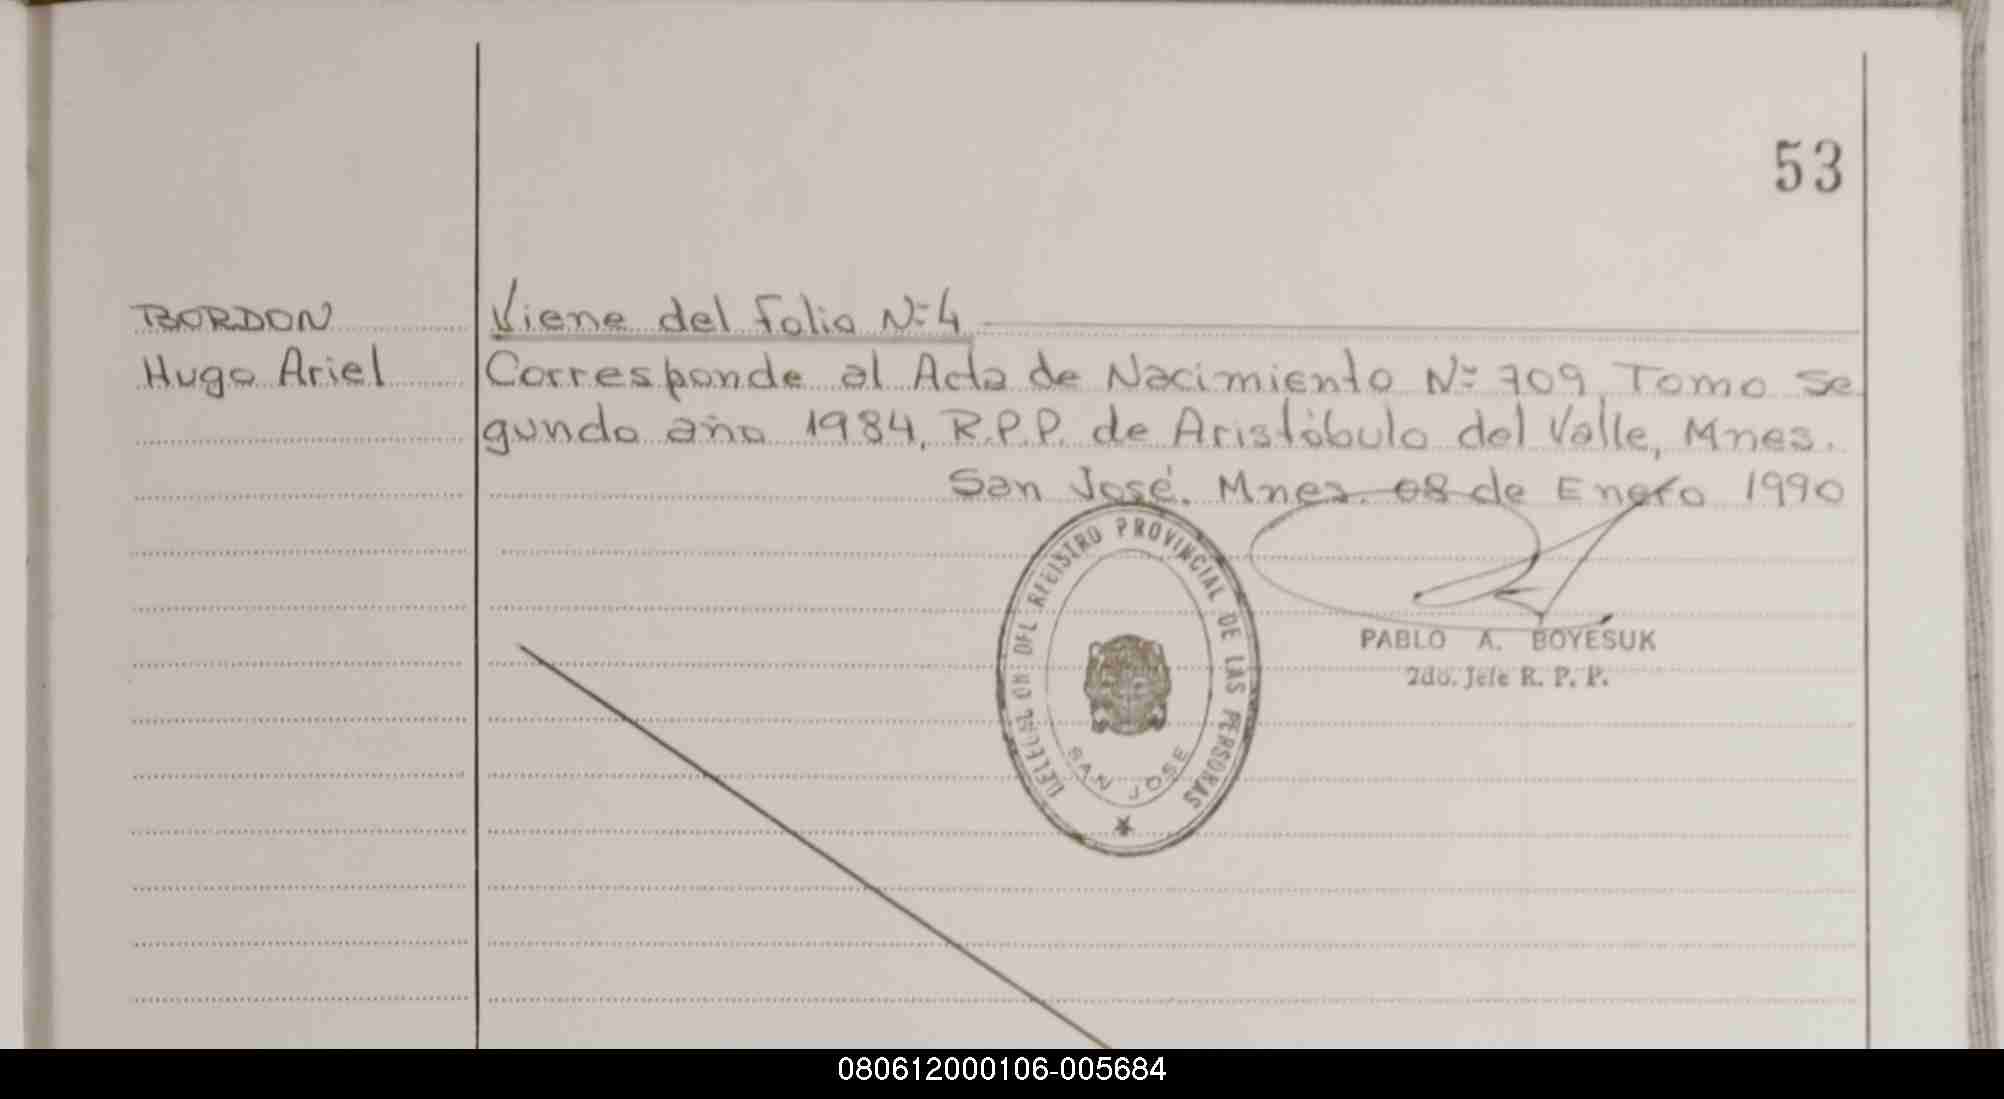 53
BORDON
Hugo Ariel
Viene del Folio Nº 4
Corresponde al Acta de Nacimiento Nº 709, Tomo Se
gundo año 1984, R.P.P. de Aristóbulo del Valle, Mnes.
San José. Mnes. 08 de Enero 1990
DELEGACION DEL REGISTRO PROVINCIAL DE LAS PERSONAS
SAN JOSE
PABLO A. BOYESUK
2do. Jefe R. P. P.
080612000106-005684